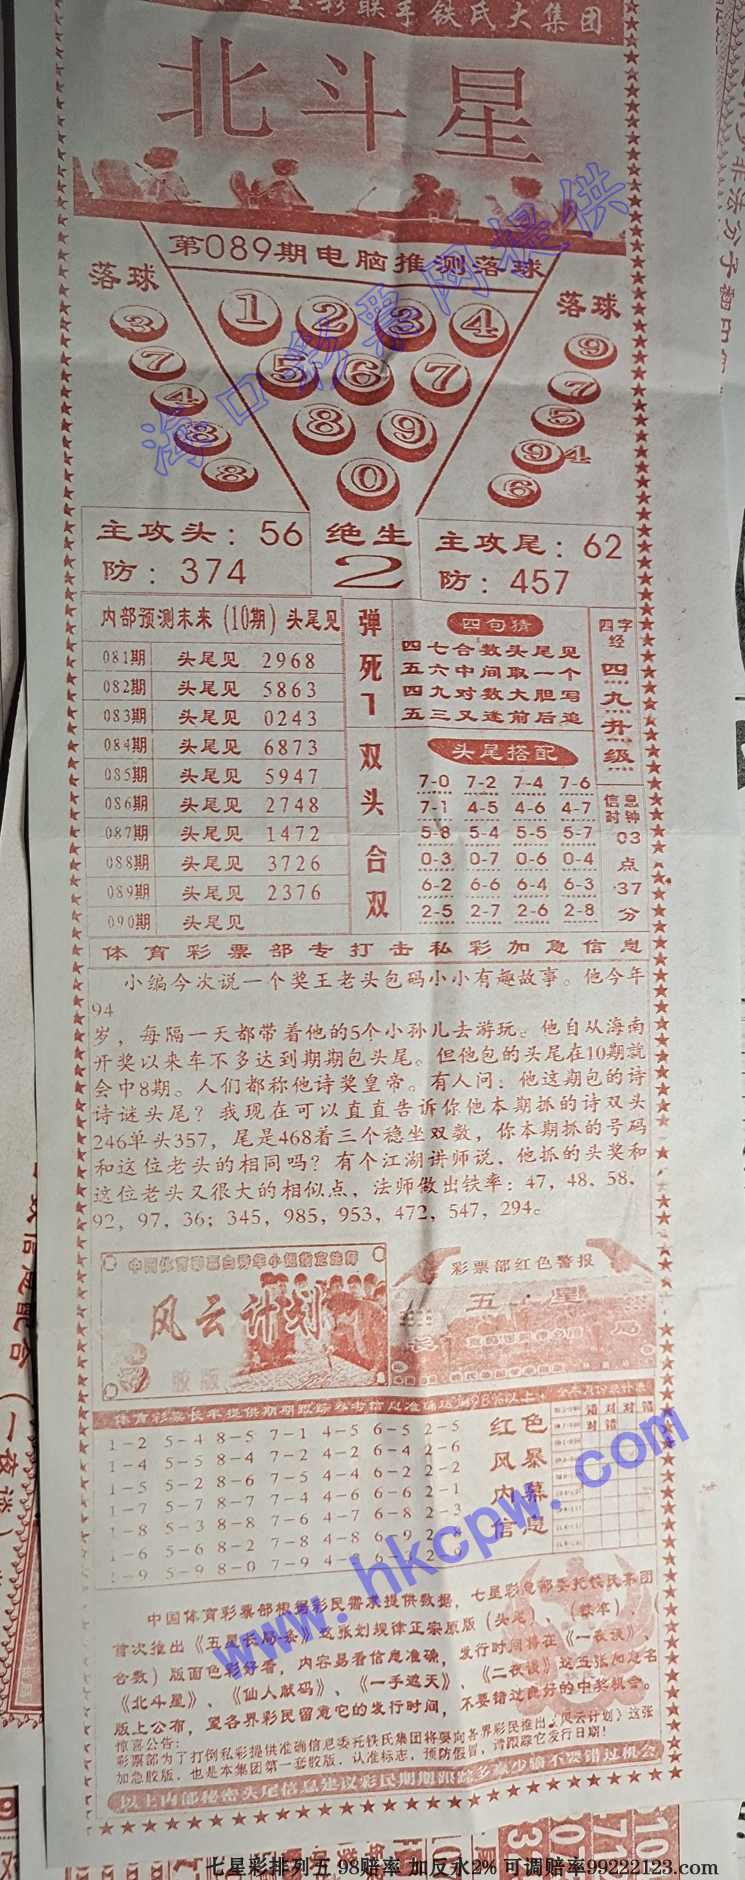 星彩联军铁氏大集团
北斗星
第089期电脑推测落球
落球
3
7
4
8
8
1 2 3 4
5 6 7
8 9
0
落球
9
7
5
9 4
6
主攻头：56
防：374
绝生
2
主攻尾：62
防：457
内部预测未来(10期)头尾见
081期 头尾见 2968
082期 头尾见 5863
083期 头尾见 0243
084期 头尾见 6873
085期 头尾见 5947
086期 头尾见 2748
087期 头尾见 1472
088期 头尾见 3726
089期 头尾见 2376
090期 头尾见
弹死1
双头合双
四句猜
四七合数头尾见
五六中间取一个
四九对数大胆写
五三又逢前后追
头尾搭配
7-0 7-2 7-4 7-6
7-1 4-5 4-6 4-7
5-8 5-4 5-5 5-7
0-3 0-7 0-6 0-4
6-2 6-6 6-4 6-3
2-5 2-7 2-6 2-8
四字经
四九升级
信息时钟
03
点
37
分
体育彩票部专打击私彩加急信息
小编今次说一个奖王老头包码小小有趣故事。他今年
94
岁，每隔一天都带着他的5个小孙儿去游玩。他自从海南
开奖以来车不多达到期期包头尾。但他包的头尾在10期就
会中8期。人们都称他诗奖皇帝。有人问：他这期包的诗
诗谜头尾？我现在可以直直告诉你他本期抓的诗双头
246单头357，尾是468着三个稳坐双数，你本期抓的号码
和这位老头的相同吗？有个江湖讲师说，他抓的头奖和
这位老头又很大的相似点，法师做出铁率：47，48、58、
92，97，36；345，985，953，472，547，294。
风云计划
胶版
彩票部红色警报
五星
体育彩票长年提供期期跟踪参考信息准确达到98%以上
1-2 5-4 8-5 7-1 4-5 6-5 2-5
1-4 5-5 8-4 7-2 4-2 6-4 2-6
1-5 5-2 8-6 7-5 4-4 6-2 2-2
1-7 5-7 8-7 7-4 4-6 6-6 2-1
1-8 5-3 8-8 7-6 4-7 6-8 2-3
1-6 5-6 8-2 7-8 4-8 6-9 2-
1-9 5-9 8-0 7-9 4-
红色
风暴
内幕
信息
错 对 对 错
对 错
中国体育彩票部根据彩民需求提供数据，七星彩总部委托铁氏集团
首次推出《五星长局-条》这张划规律正宗原版（头尾）、（禁率）、
合数）版面色彩好看，内容易看信息准确，发行时间将在《一夜谈》、
《北斗星》、《仙人献码》、《一手遮天》、《二夜谈》这五张加急名
版上公布，望各界彩民留意它的发行时间，不要错过良好的中奖机会。
惊喜公告：
彩票部为了打倒私彩提供准确信息委托铁氏集团将要向各界彩民推出《风云计划》这张
加急胶版．也是本集团第一套胶版．认准标志，预防假冒，请跟踪它发行日期！
以上内部秘密头尾信息建议彩民期期跟踪多赢少输不要错过机会
海口彩票网提供
www.hkcpw.com
七星彩排列五 98赔率 加反水2% 可调赔率99222123.com